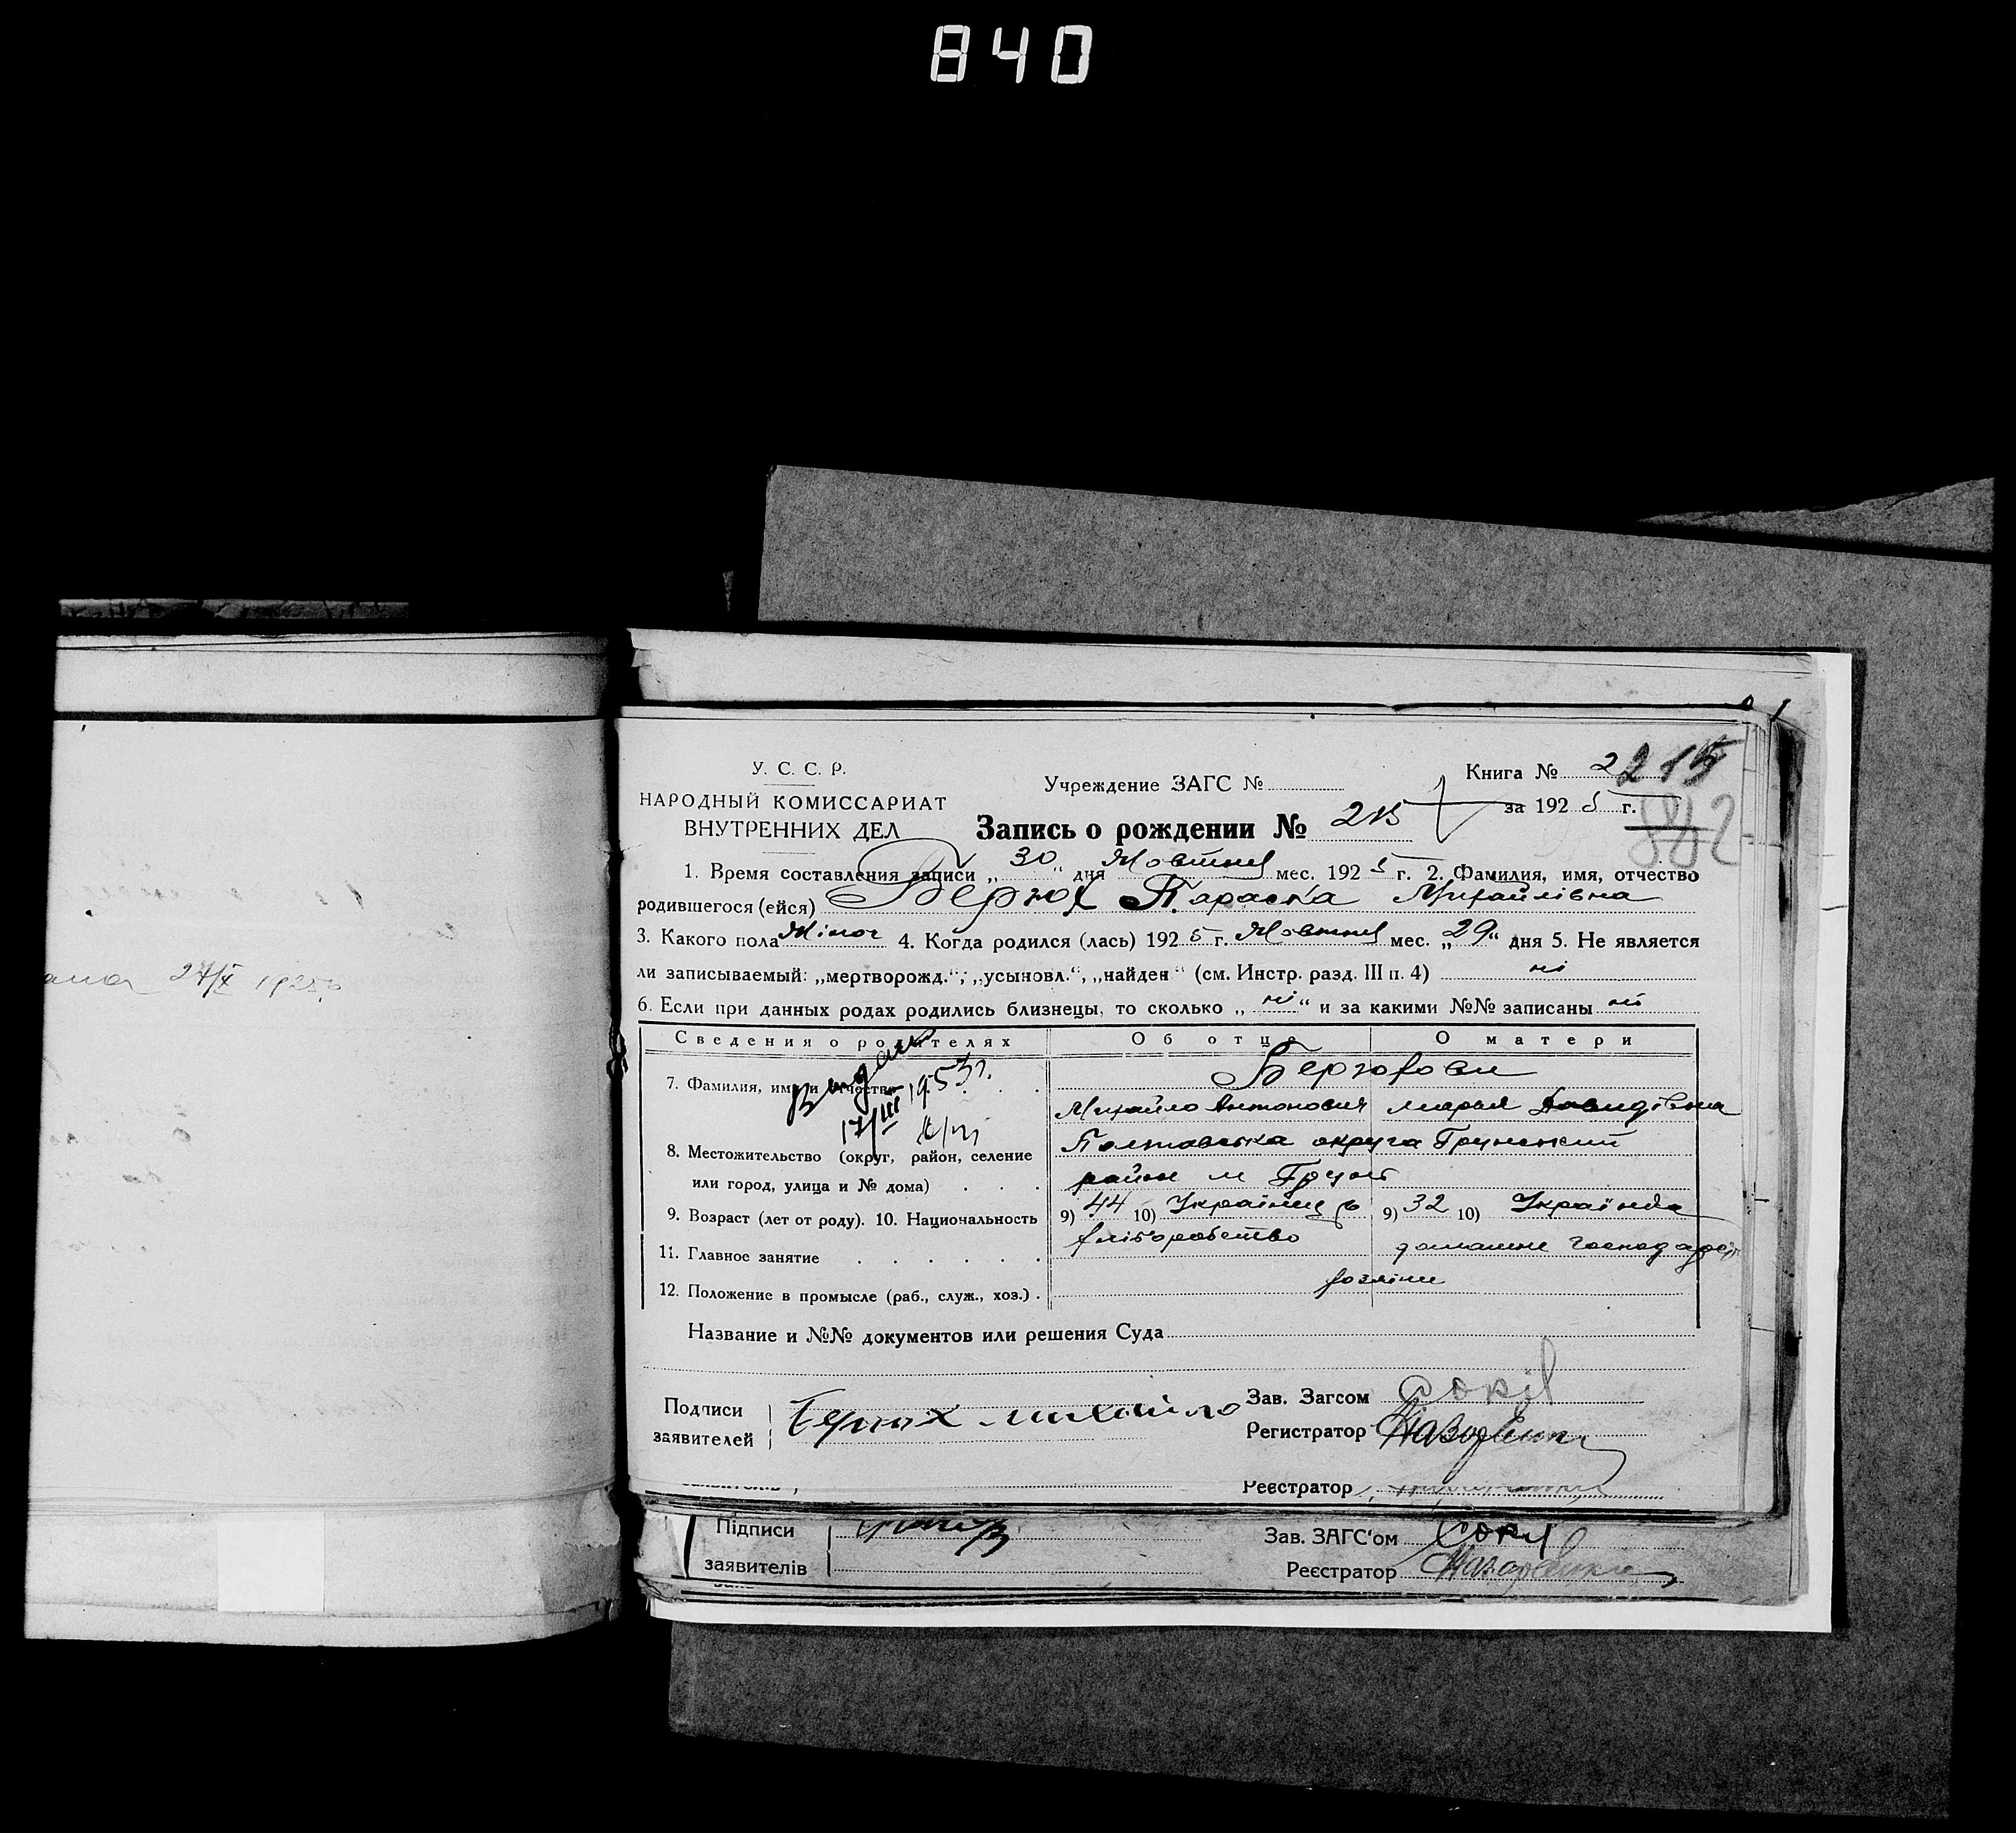 840
У. С. С. Р.
НАРОДНЫЙ КОМИССАРИАТ
ВНУТРЕННИХ ДЕЛ
Учреждение ЗАГС №
Книга № 2 215
за 1925 г. 882
Запись о рождении № 215
1. Время составления записи „30“ дня Жовтня мес. 1925 г. 2. Фамилия, имя, отчество
родившегося (ейся) Берюх Параска Михайлівна
3. Какого пола Жіноч 4. Когда родился (лась) 1925 г. Жовтня мес. „29“ дня 5. Не является
ли записываемый: „мертворожд.“; „усыновл.“, „найден“ (см. Инстр. разд. III п. 4) ні
6. Если при данных родах родились близнецы, то сколько „ні“ и за какими №№ записаны ні
Сведения о родителях Об отце О матери
7. Фамилия, имя и отчество Берюхови
Михайло Антонович Марья Давидівна
17/III 1953 г.
8. Местожительство (округ, район, селение Полтавська округа Грунський
или город, улица и № дома) район м Грунь
9. Возраст (лет от роду). 10. Национальность 9) 44 10) Українець 9) 32 10) Українка
11. Главное занятие хліборобство домашнє господар
12. Положение в промысле (раб., служ., хоз.)
Название и №№ документов или решения Суда
Подписи
заявителей Берюх Михайло
Зав. Загсом Сокіл
Регистратор
Реєстратор
Підписи
заявителів
Зав. ЗАГС'ом
Реєстратор
27/X 1925